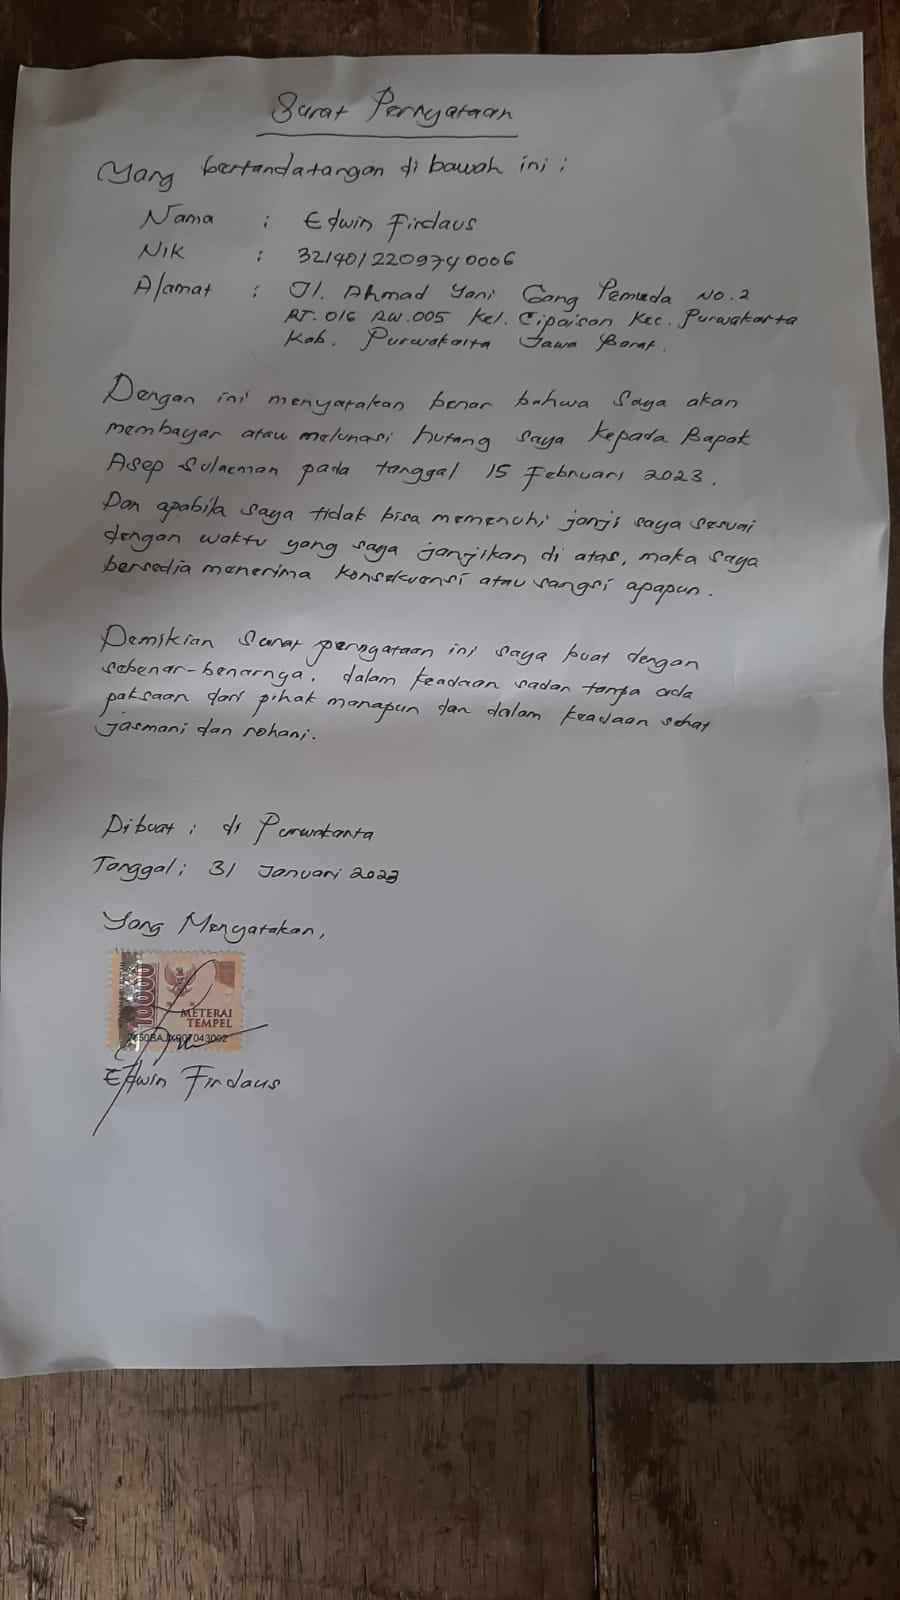 Surat Pernyataan
Yang bertandatangan di bawah ini :
Nama : Edwin Firdaus
NIK : 3214012209740006
Alamat : Jl. Ahmad Yani Gang Pemuda No. 2
RT. 016 RW. 005 Kel. Cipaisan Kec. Purwakarta
Kab. Purwakarta Jawa Barat.
Dengan ini menyatakan benar bahwa saya akan
membayar atau melunasi hutang saya kepada Bapak
Asep Sulaeman pada tanggal 15 Februari 2023.
Dan apabila saya tidak bisa memenuhi janji saya sesuai
dengan waktu yang saya janjikan di atas, maka saya
bersedia menerima konsekuensi atau sangsi apapun.
Demikian surat pernyataan ini saya buat dengan
sebenar-benarnya. dalam keadaan sadar tanpa ada
paksaan dari pihak manapun dan dalam keadaan sehat
jasmani dan rohani.
Dibuat : di Purwakarta
Tanggal : 31 Januari 2023
Yang Menyatakan,
10000
METERAI
TEMPEL
Edwin Firdaus